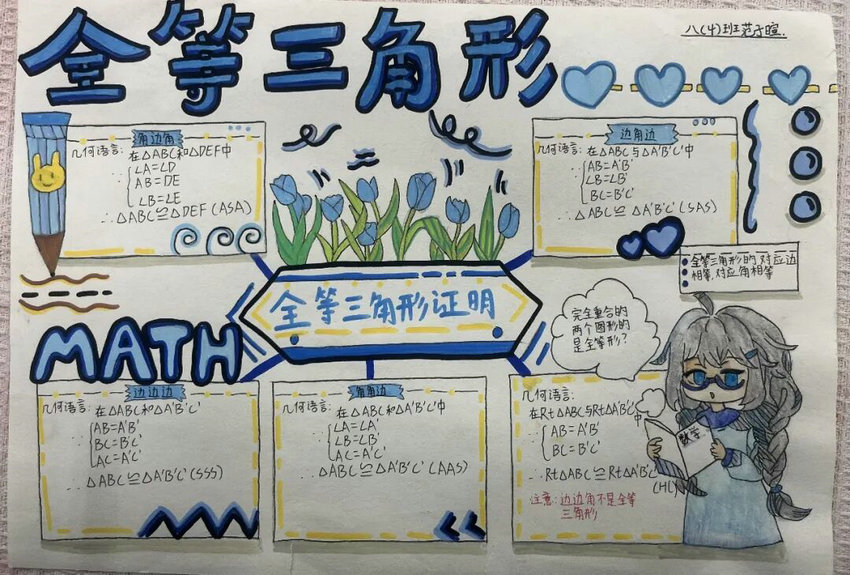 全等三角形
八(4)班范子暄.
角边角
几何语言: 在△ABC和△DEF中
∠A=∠D
AB=DE
∠B=∠E
∴△ABC≌△DEF (ASA)
边角边
几何语言: 在△ABC与△A'B'C'中
AB=A'B'
∠B=∠B'
BC=B'C'
∴△ABC≌△A'B'C' (SAS)
全等三角形的对应边
相等,对应角相等
全等三角形证明
完全重合的
两个图形的
是全等形?
MATH
边边边
几何语言: 在△ABC和△A'B'C'
AB=A'B'
BC=B'C'
AC=A'C'
∴△ABC≌△A'B'C' (SSS)
角角边
几何语言: 在△ABC和△A'B'C'中
∠A=∠A'
∠B=∠B'
AC=A'C'
∴△ABC≌△A'B'C' (AAS)
几何语言:
在Rt△ABC与Rt△A'B'C'中
AB=A'B'
BC=B'C'
∴Rt△ABC≌Rt△A'B'C'
(HL)
注意: 边边角不是全等
三角形
数学